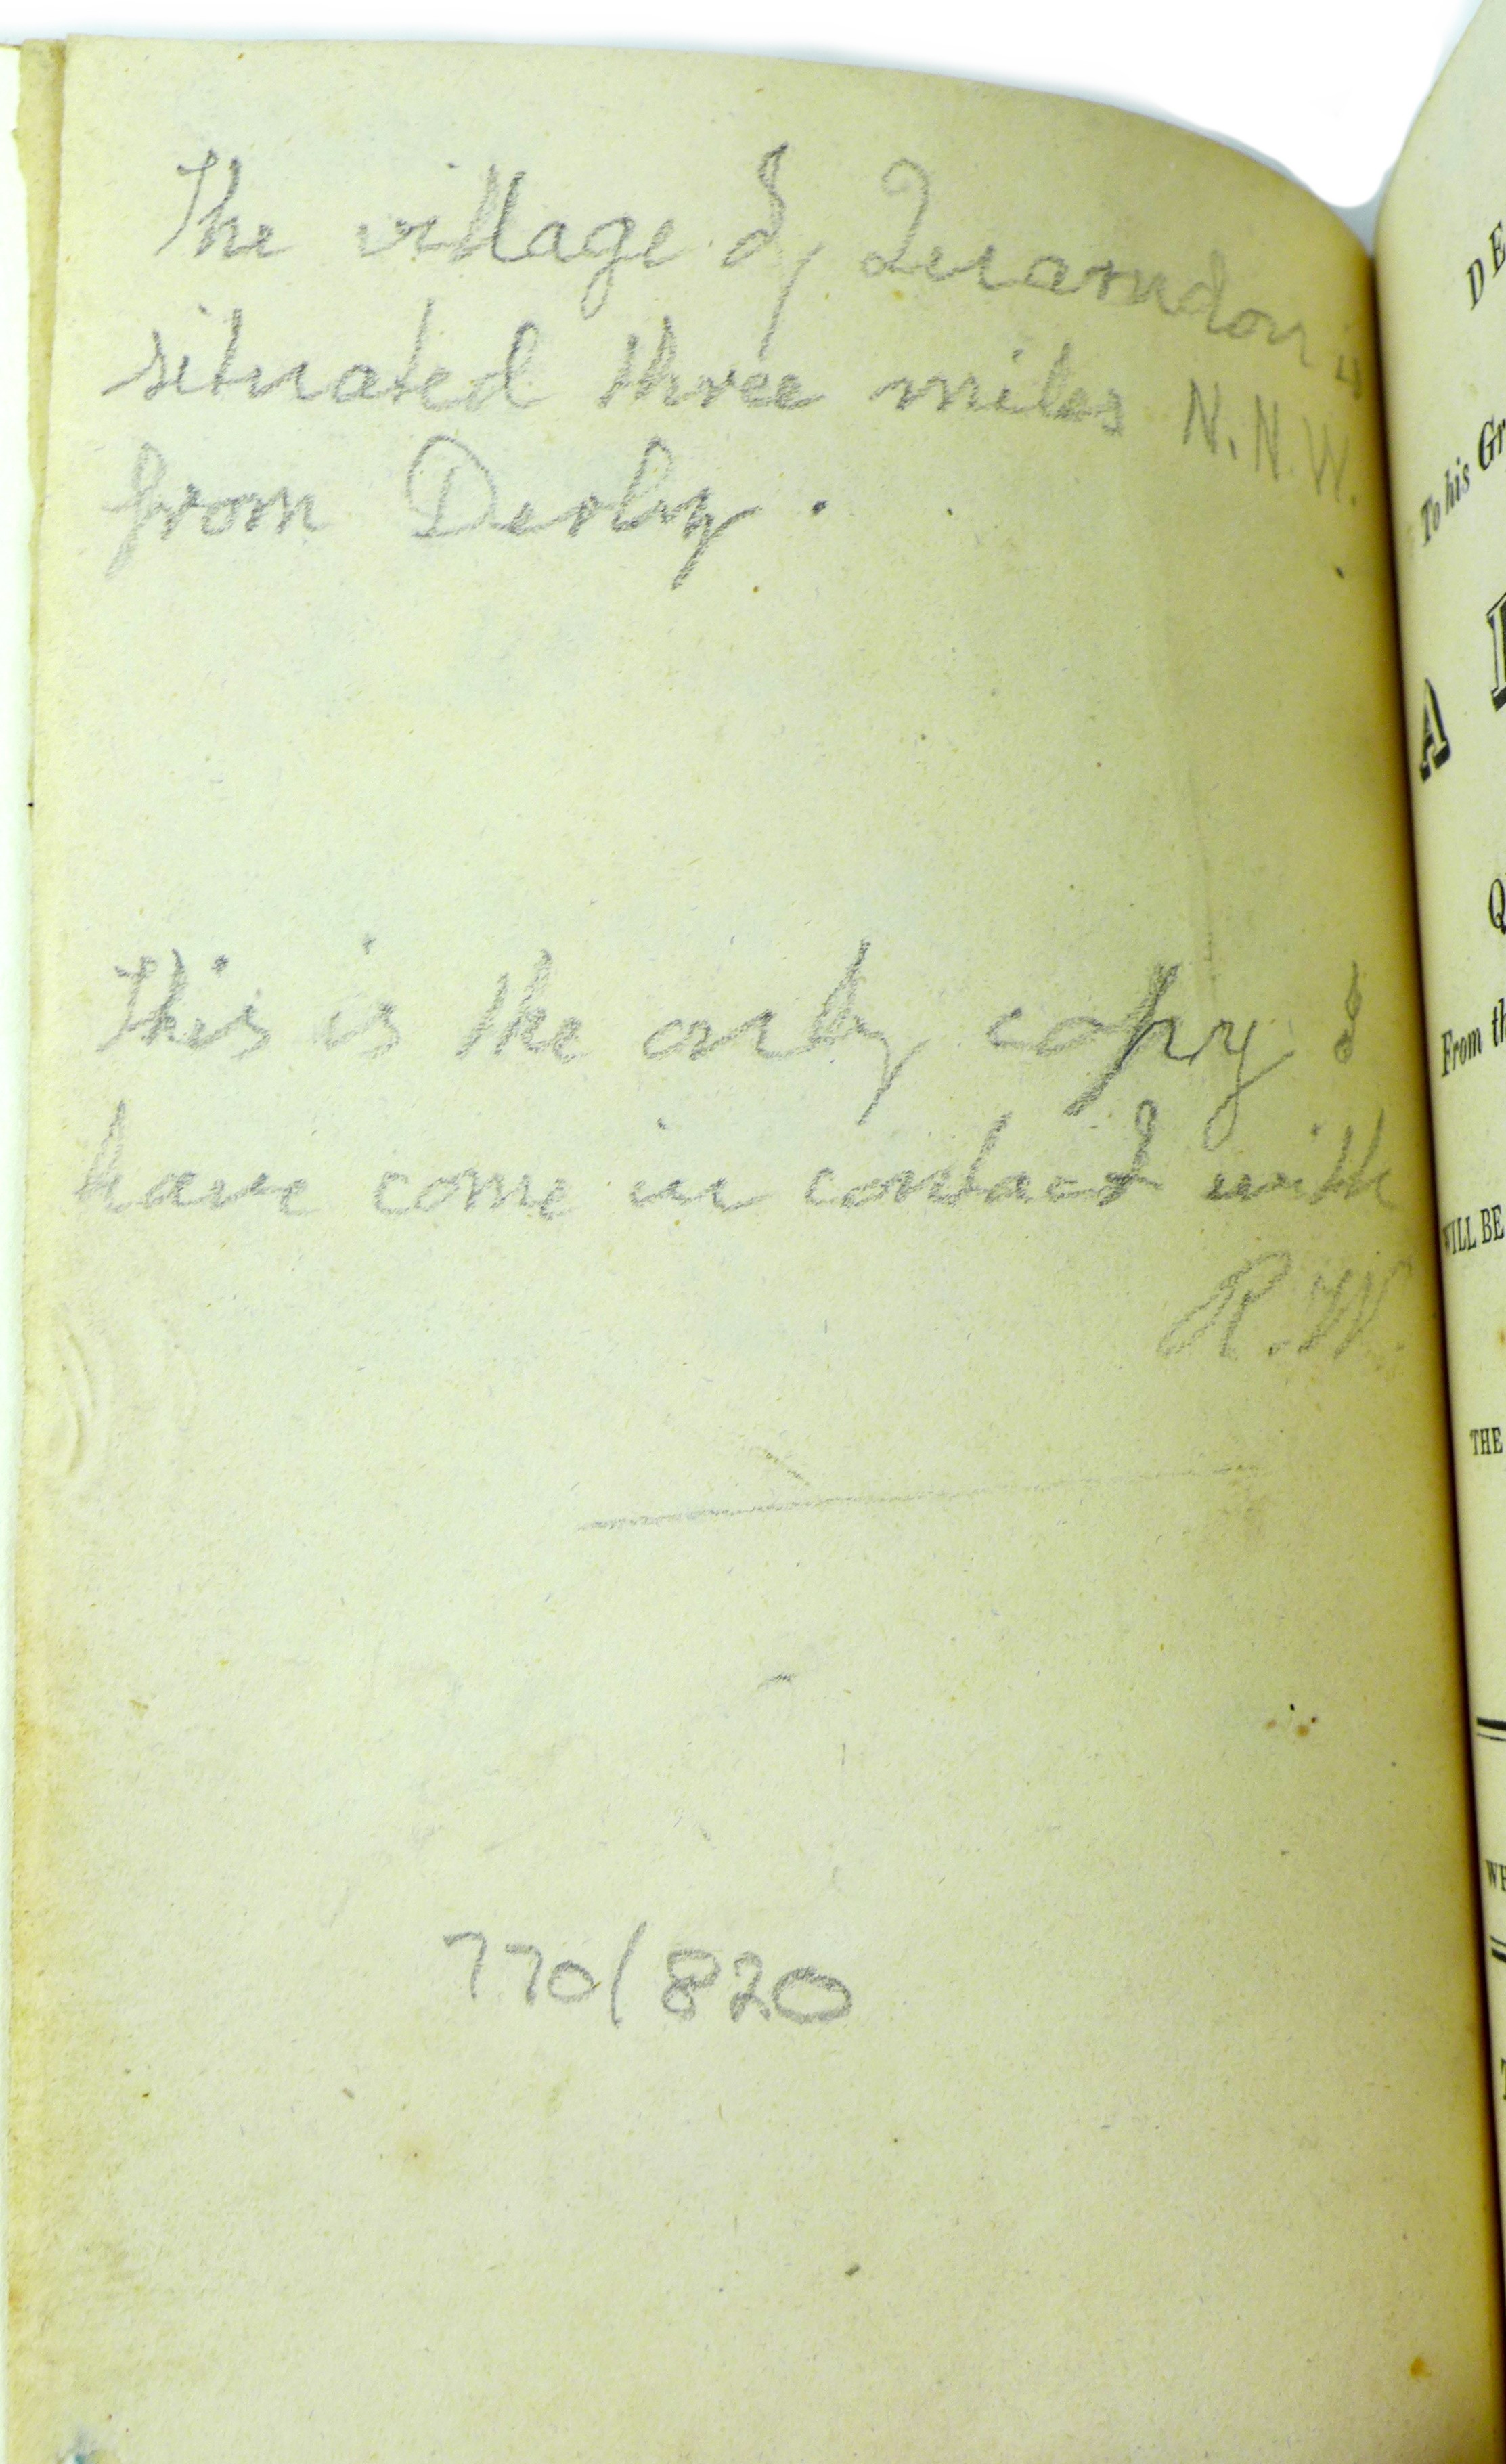 The village of Quarndon is
situated three miles N.N.W.
from Derby.
This is the only copy I
have come in contact with
R.W.
770/820
DE
To his Gr
A
Q
From th
WILL BE
THE
WH